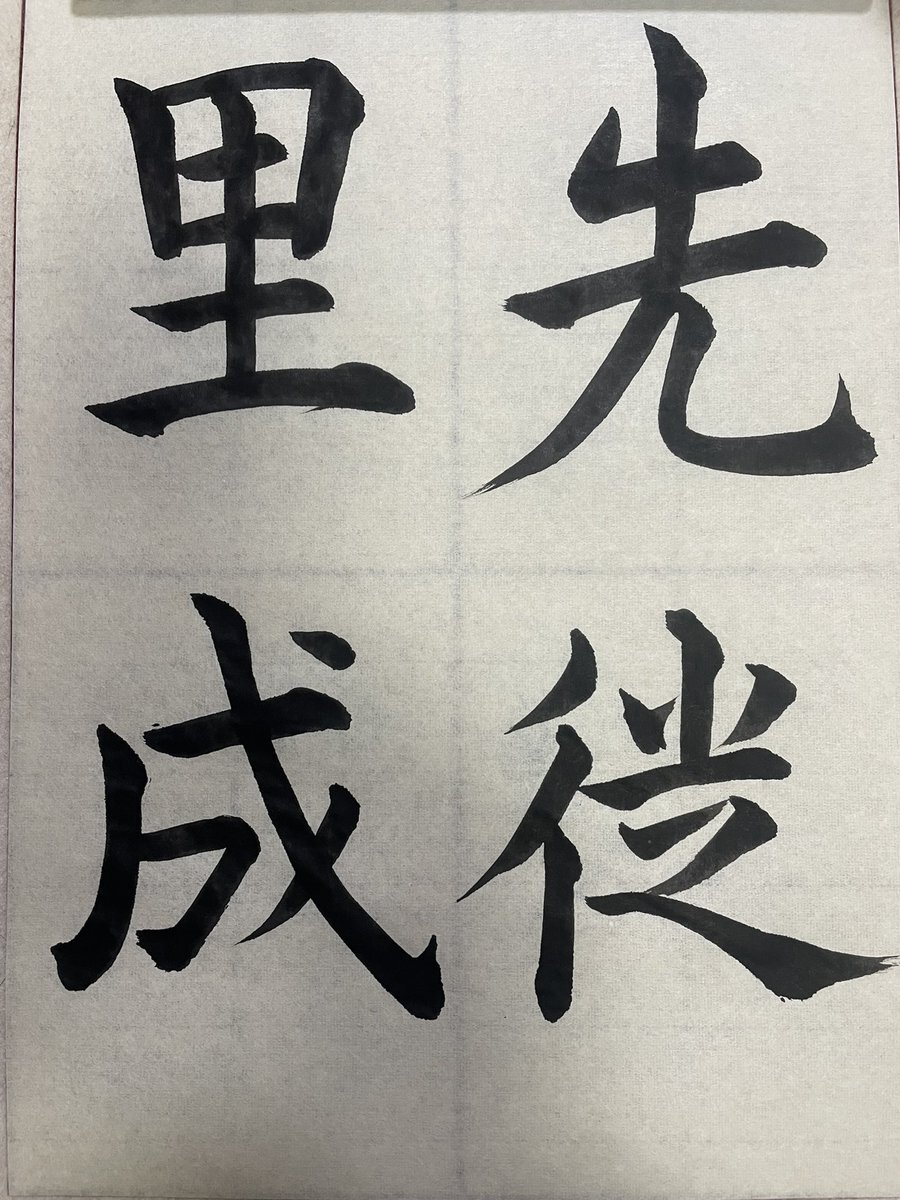 先従
里成